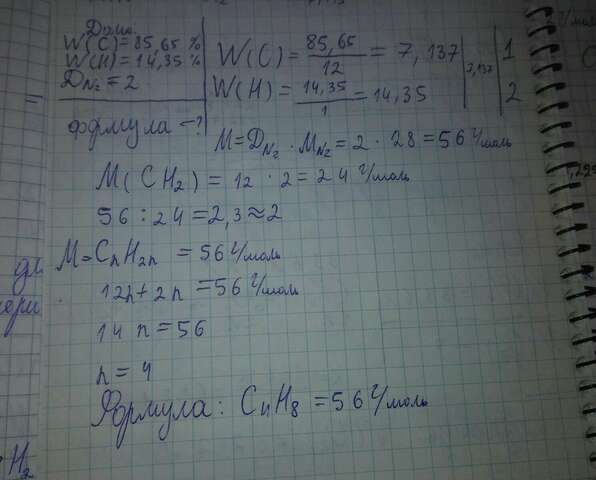 Дано:
W(C)=85,65 %
W(H)=14,35 %
D N₂ = 2
формула -?
W(C) = 85,65/12 = 7,137 | 7,137 | 1
W(H) = 14,35/1 = 14,35 | 2
M=D N₂ · M N₂ = 2 · 28 = 56 г/моль
M(CH₂) = 12 · 2 = 24 г/моль
56 : 24 = 2,3 ≈ 2
M=CₙH₂ₙ = 56 г/моль
12n+2n = 56 г/моль
14 n = 56
n = 4
Формула: C₄H₈ = 56 г/моль
H₂